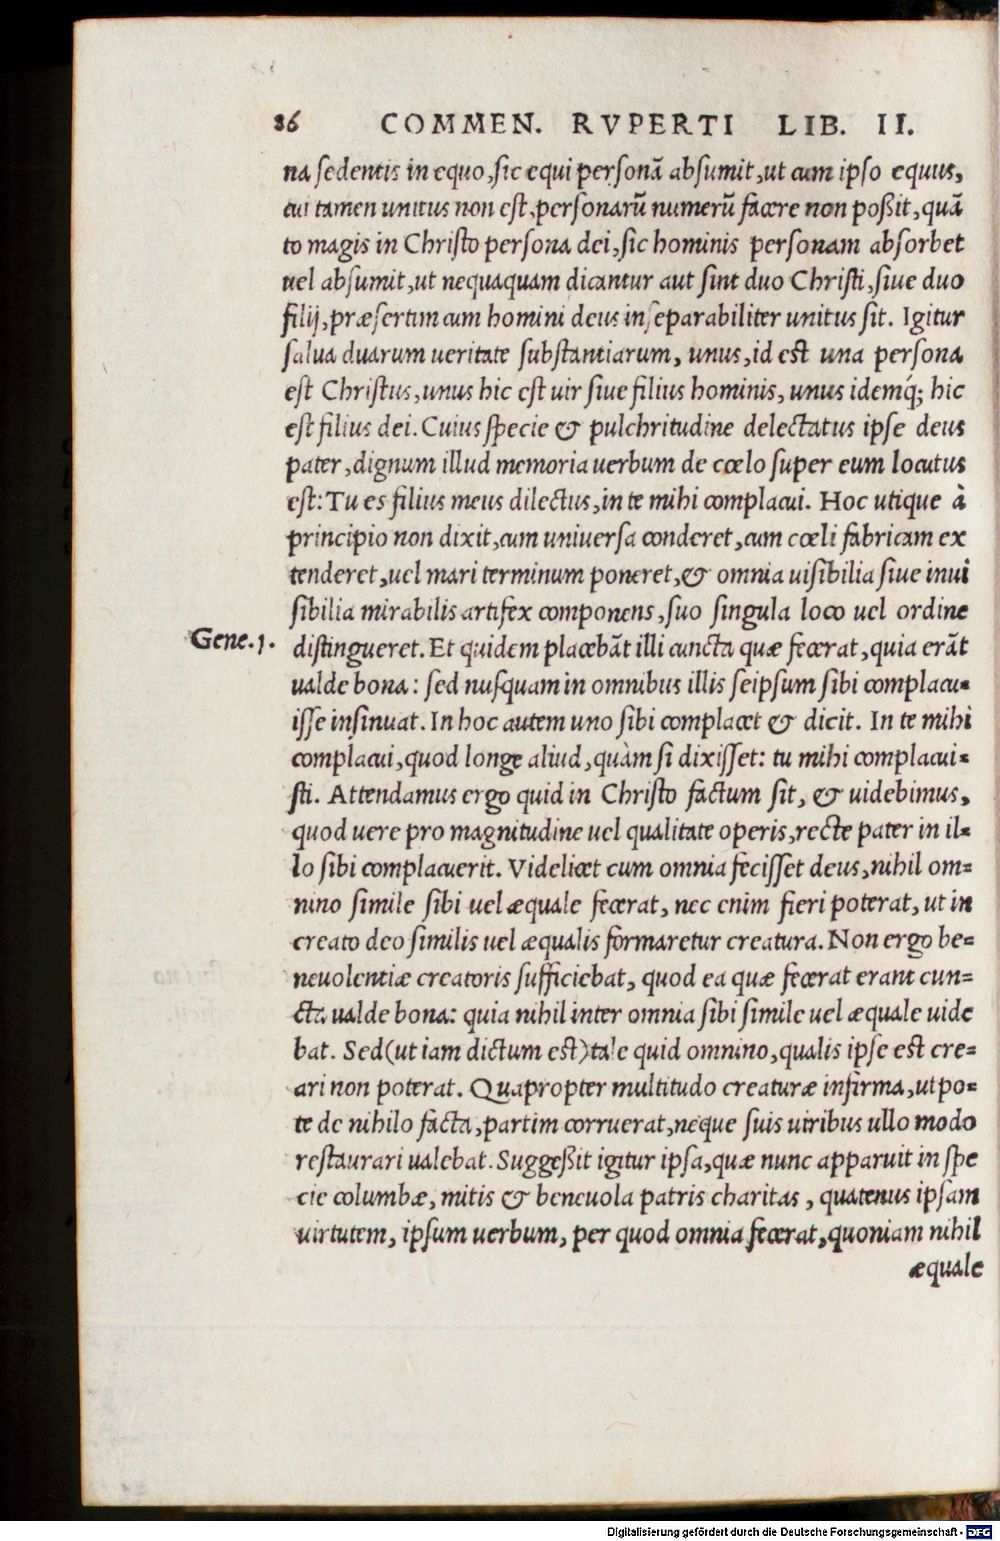 86 COMMEN. RVPERTI LIB. II.
na sedentis in equo, sic equi personā absumit, ut cum ipso equus,
cui tamen unitus non est, personarū numerū facere non poßit, quā
to magis in Christo persona dei, sic hominis personam absorbet
uel absumit, ut nequaquam dicantur aut sint duo Christi, siue duo
filij, præsertim cum homini deus inseparabiliter unitus sit. Igitur
salua duarum ueritate substantiarum, unus, id est una persona
est Christus, unus hic est uir siue filius hominis, unus idemq́; hic
est filius dei. Cuius specie & pulchritudine delectatus ipse deus
pater, dignum illud memoria uerbum de cœlo super eum locutus
est: Tu es filius meus dilectus, in te mihi complacui. Hoc utique à
principio non dixit, cum uniuersa conderet, cum cœli fabricam ex
tenderet, uel mari terminum poneret, & omnia uisibilia siue inui
sibilia mirabilis artifex componens, suo singula loco uel ordine
Gene. 1. distingueret. Et quidem placebāt illi cuncta quæ fecerat, quia erāt
ualde bona: sed nusquam in omnibus illis seipsum sibi complacu-
isse insinuat. In hoc autem uno sibi complacet & dicit. In te mihi
complacui, quod longe aliud, quàm si dixisset: tu mihi complacui-
sti. Attendamus ergo quid in Christo factum sit, & uidebimus,
quod uere pro magnitudine uel qualitate operis, recte pater in il-
lo sibi complacuerit. Videlicet cum omnia fecisset deus, nihil om-
nino simile sibi uel æquale fecerat, nec enim fieri poterat, ut in
creato deo similis uel æqualis formaretur creatura. Non ergo be-
neuolentiæ creatoris sufficiebat, quod ea quæ fecerat erant cun-
cta ualde bona: quia nihil inter omnia sibi simile uel æquale uide
bat. Sed (ut iam dictum est) tale quid omnino, qualis ipse est cre-
ari non poterat. Quapropter multitudo creaturæ infirma, utpo-
te de nihilo facta, partim corruerat, neque suis uiribus ullo modo
restaurari ualebat. Suggeßit igitur ipsa, quæ nunc apparuit in spe
cie columbæ, mitis & beneuola patris charitas, quatenus ipsam
uirtutem, ipsum uerbum, per quod omnia fecerat, quoniam nihil
æquale
Digitalisierung gefördert durch die Deutsche Forschungsgemeinschaft - DFG